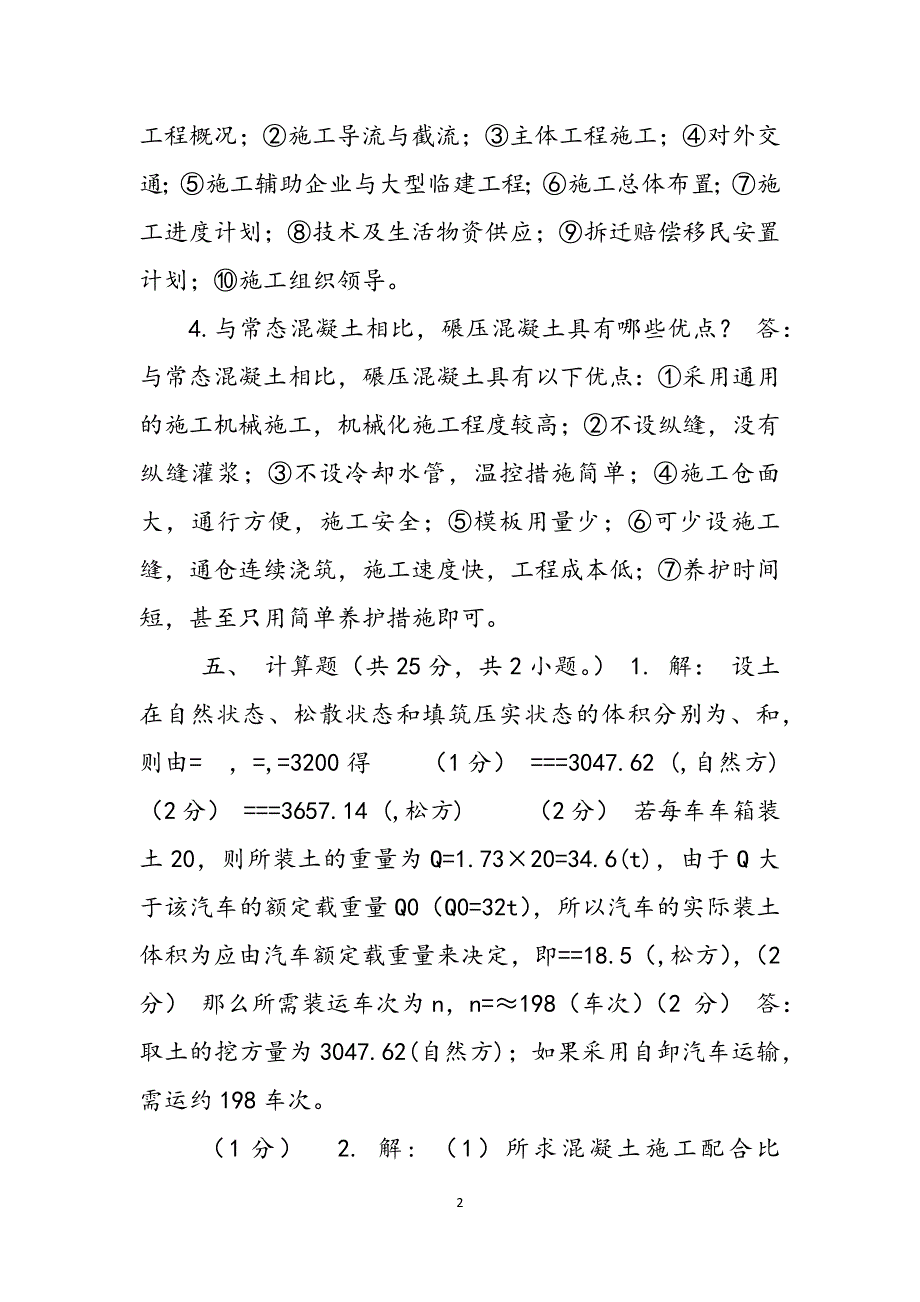 工程概况；②施工导流与截流；③主体工程施工；④对外交
通；⑤施工辅助企业与大型临建工程；⑥施工总体布置；⑦施
工进度计划；⑧技术及生活物资供应；⑨拆迁赔偿移民安置
计划；⑩施工组织领导。
4.与常态混凝土相比，碾压混凝土具有哪些优点？ 答：
与常态混凝土相比，碾压混凝土具有以下优点：①采用通用
的施工机械施工，机械化施工程度较高；②不设纵缝，没有
纵缝灌浆；③不设冷却水管，温控措施简单；④施工仓面
大，通行方便，施工安全；⑤模板用量少；⑥可少设施工
缝，通仓连续浇筑，施工速度快，工程成本低；⑦养护时间
短，甚至只用简单养护措施即可。
五、 计算题（共25分，共2小题。） 1. 解： 设土
在自然状态、松散状态和填筑压实状态的体积分别为、和，
则由= ，=,=3200得 （1分） ===3047.62 (,自然方)
（2分） ===3657.14 (,松方) （2分） 若每车车箱装
土20，则所装土的重量为Q=1.73×20=34.6(t)，由于Q大
于该汽车的额定载重量Q0（Q0=32t），所以汽车的实际装土
体积为应由汽车额定载重量来决定，即==18.5（,松方），（2
分） 那么所需装运车次为n，n=≈198（车次）（2 分） 答：
取土的挖方量为3047.62(自然方)；如果采用自卸汽车运输，
需运约198车次。
（1分） 2. 解：（1）所求混凝土施工配合比
2